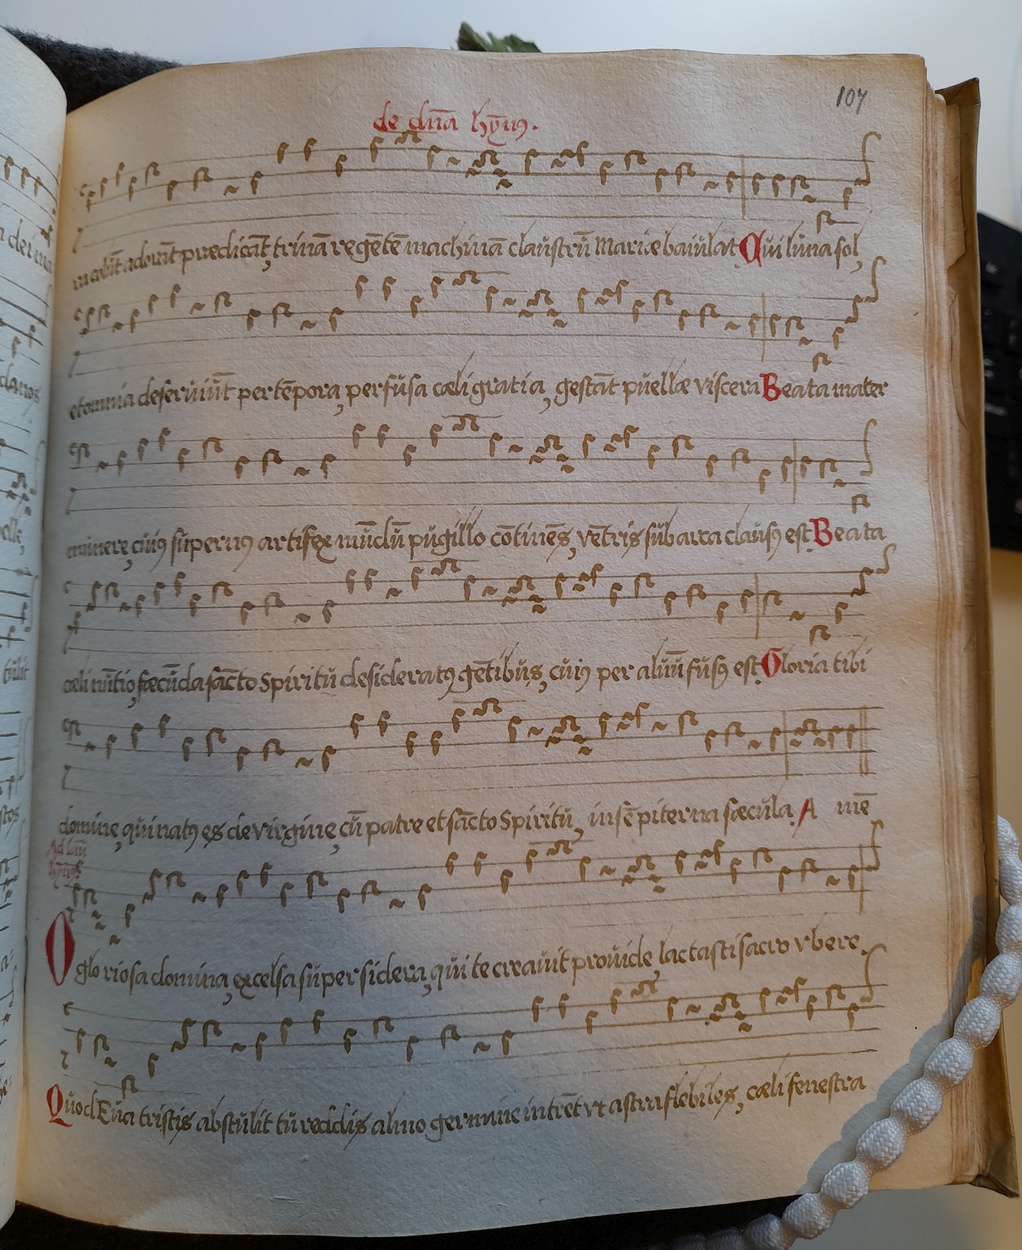 107
de dn̄a hȳn9.
ra colūt adorāt prædicāt, trinā regētē machinā claustrū Mariæ baiulat Qui luna sol,
et omnia deseruiūt per tēpora, perfusa cæli gratia, gestāt puellæ viscera Beata mater
munere, cui9 supern9 artifex mūdū pugillo cōtinēs, vētris sub arca claus9 est Beata
cæli nūtio, fœcūda sācto Spiritu desiderat9 gētibus, cui9 per aluū fus9 est Gloria tibi
domine, qui nat9 es de virgine, cū patre et sācto Spiritu, in sēpiterna sæcula. A mē
Ad lau
hȳn9
O glo riosa domina, excelsa super sidera, qui te creauit prouide, lactasti sacro vbere.
Quod Eua tristis abstulit tu reddis almo germine intrēt vt astra flebiles, cæli fenestra